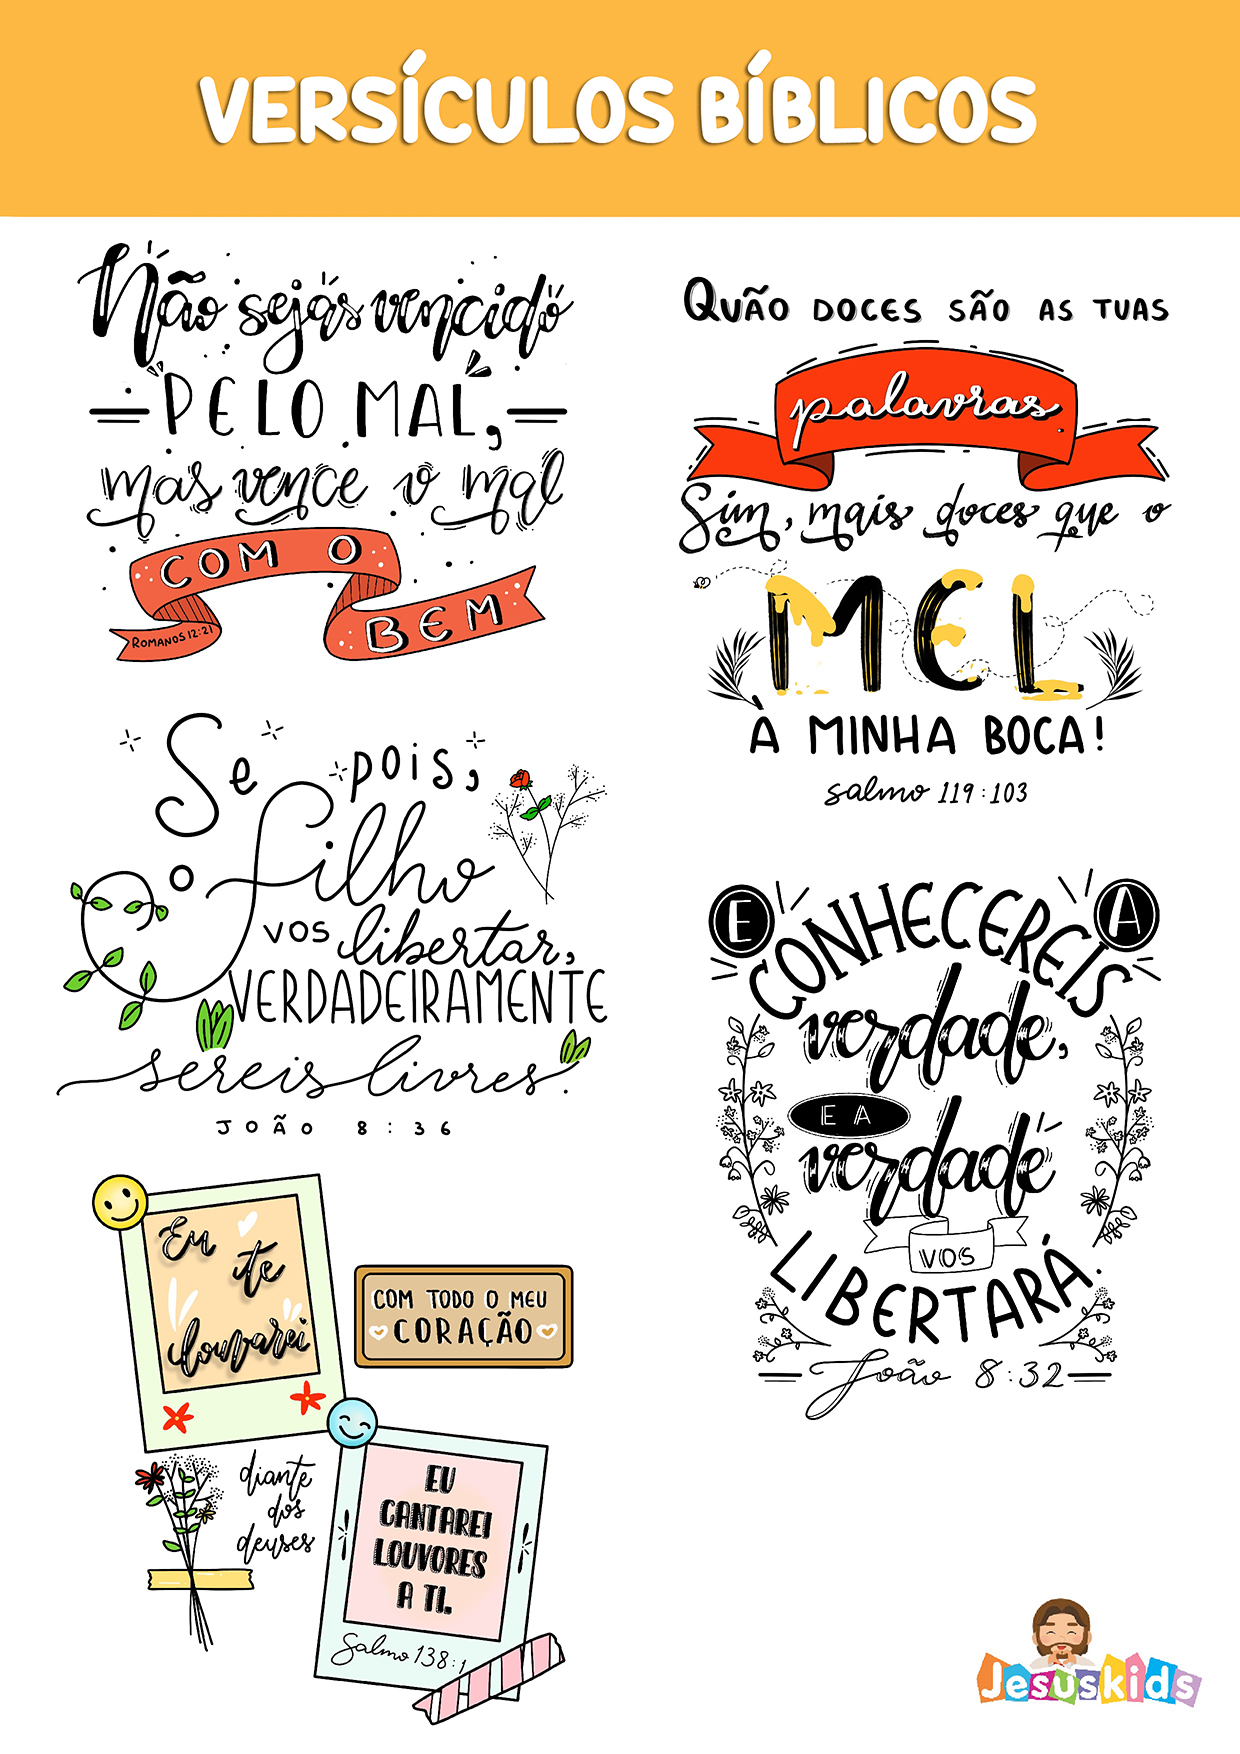 VERSÍCULOS BÍBLICOS
Não sejas vencido
PELO MAL,
mas vence o mal
COM O
BEM
ROMANOS 12:21
QUÃO DOCES SÃO AS TUAS
palavras
Sim, mais doces que o
MEL
À MINHA BOCA!
salmo 119:103
Se pois,
o filho
vos libertar,
VERDADEIRAMENTE
sereis livres.
JOÃO 8:36
E CONHECEREIS A
verdade,
E A
verdade
VOS
LIBERTARÁ.
João 8:32
Eu
te
louvarei
COM TODO O MEU
CORAÇÃO
diante
dos
deuses
EU
CANTAREI
LOUVORES
A TI.
Salmo 138:1
Jesuskids